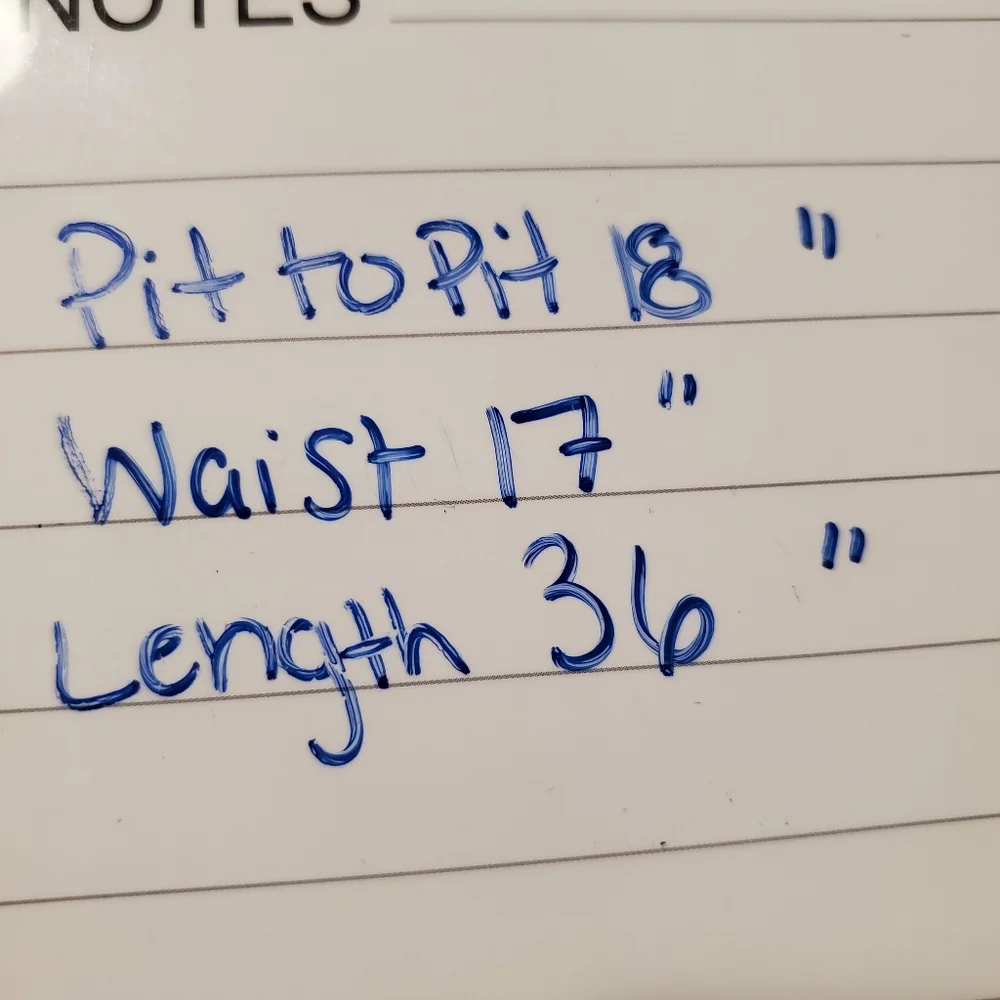 NOTES
Pit to Pit 18 "
Waist 17 "
Length 36 "